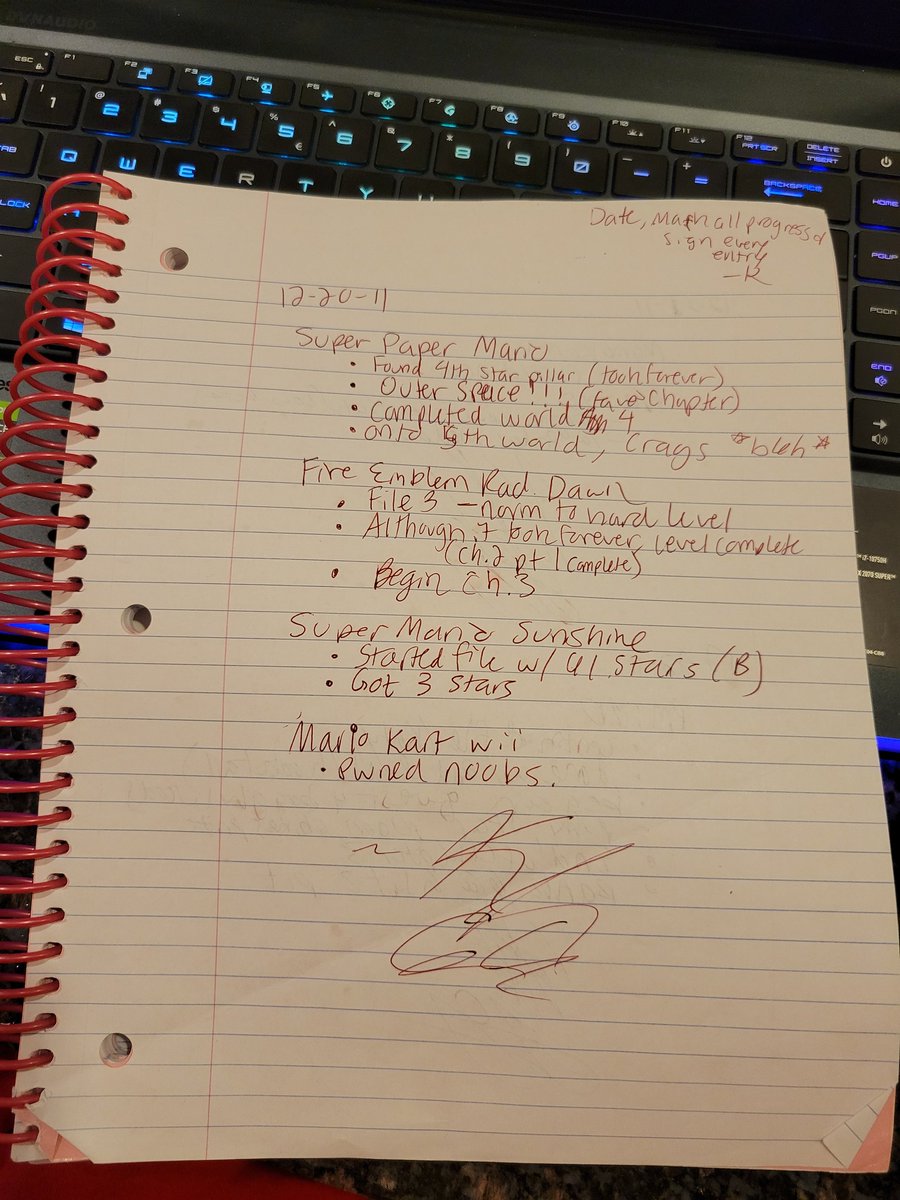 DYNAUDIO
ESC F1 F2 F3 F4 F5 F6 F7 F8 F9 F10 F11 F12 PRTSCR DELETE INSERT
! 1 @ 2 # 3 $ 4 % 5 € ^ 6 & 7 * 8 ( 9 ) 0 - + = BACKSPACE HOME
TAB Q W E R T Y PGUP
LOCK PGDN
END
Date, Mark all progress &
sign every
entry
-K
12-20-11
Super Paper Mario
• Found 4th star pillar (took forever)
• Outer Space!!! (fave Chapter)
• Completed world 4
• onto 5th world, Crags *bleh*
Fire Emblem Rad. Dawn
• File 3 - norm to hard level
• Although it took forever, level complete
(ch.2 pt 1 complete)
• Begin ch.3
Super Mario Sunshine
• Started file w/ 41 stars (B)
• Got 3 stars
Mario Kart wii
• pwned noobs.
~
i7-10750H
X 2070 SUPER™